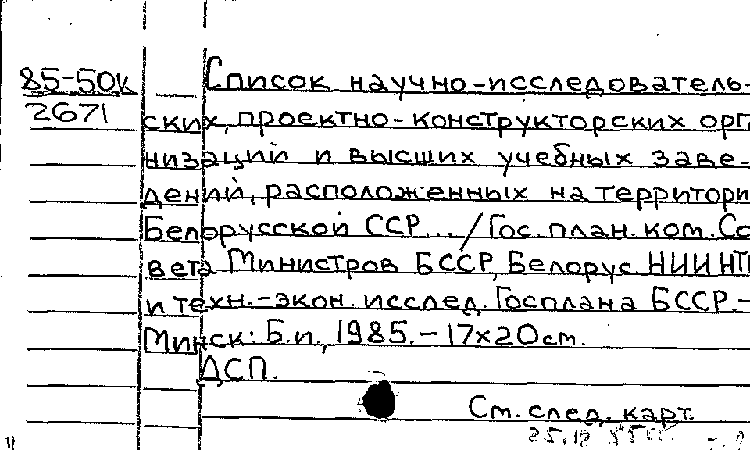 85-50к Список научно-исследователь-
2671 ских, проектно-конструкторских орг
низаций и высших учебных заве-
дений, расположенных на территори
Белорусской ССР.../Гос. план. ком. Со
вета Министров БССР, Белорус. НИИ НТИ
и техн.-экон. исслед. Госплана БССР.-
Минск: Б.и., 1985.-17х20см.
ДСП.
См. след. карт.